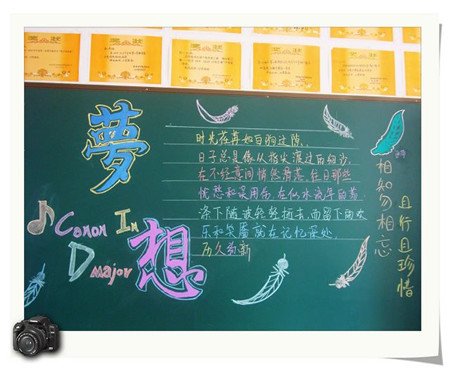 夢想
Conon In
D major
时光荏苒如白驹过隙、
日子总是像从指尖渡过的细沙,
在不经意间悄然滑落。往日那些
忧愁和误用伤,在似水流年的荡
涤下随波轻轻逝去,而留下的欢
乐和笑靥就在记忆深处,
历久弥新
相知勿相忘
且行且珍惜